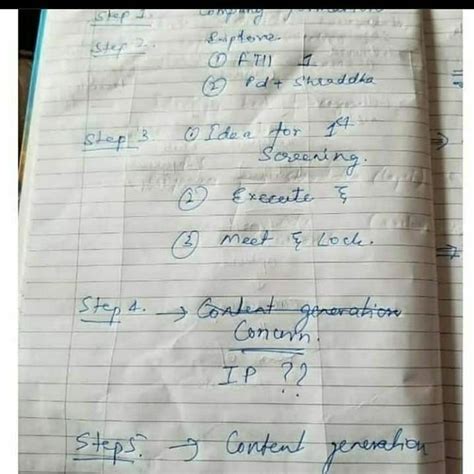 Step 1. Company formation
Step 2. Explore
① FTII 1
② Pd + Shraddha
Step 3. ① Idea for 1st
Screening.
② Execute &
③ Meet & Lock.
Step 4. → Content generation
Concern.
IP ??
Step 5 → Content generation